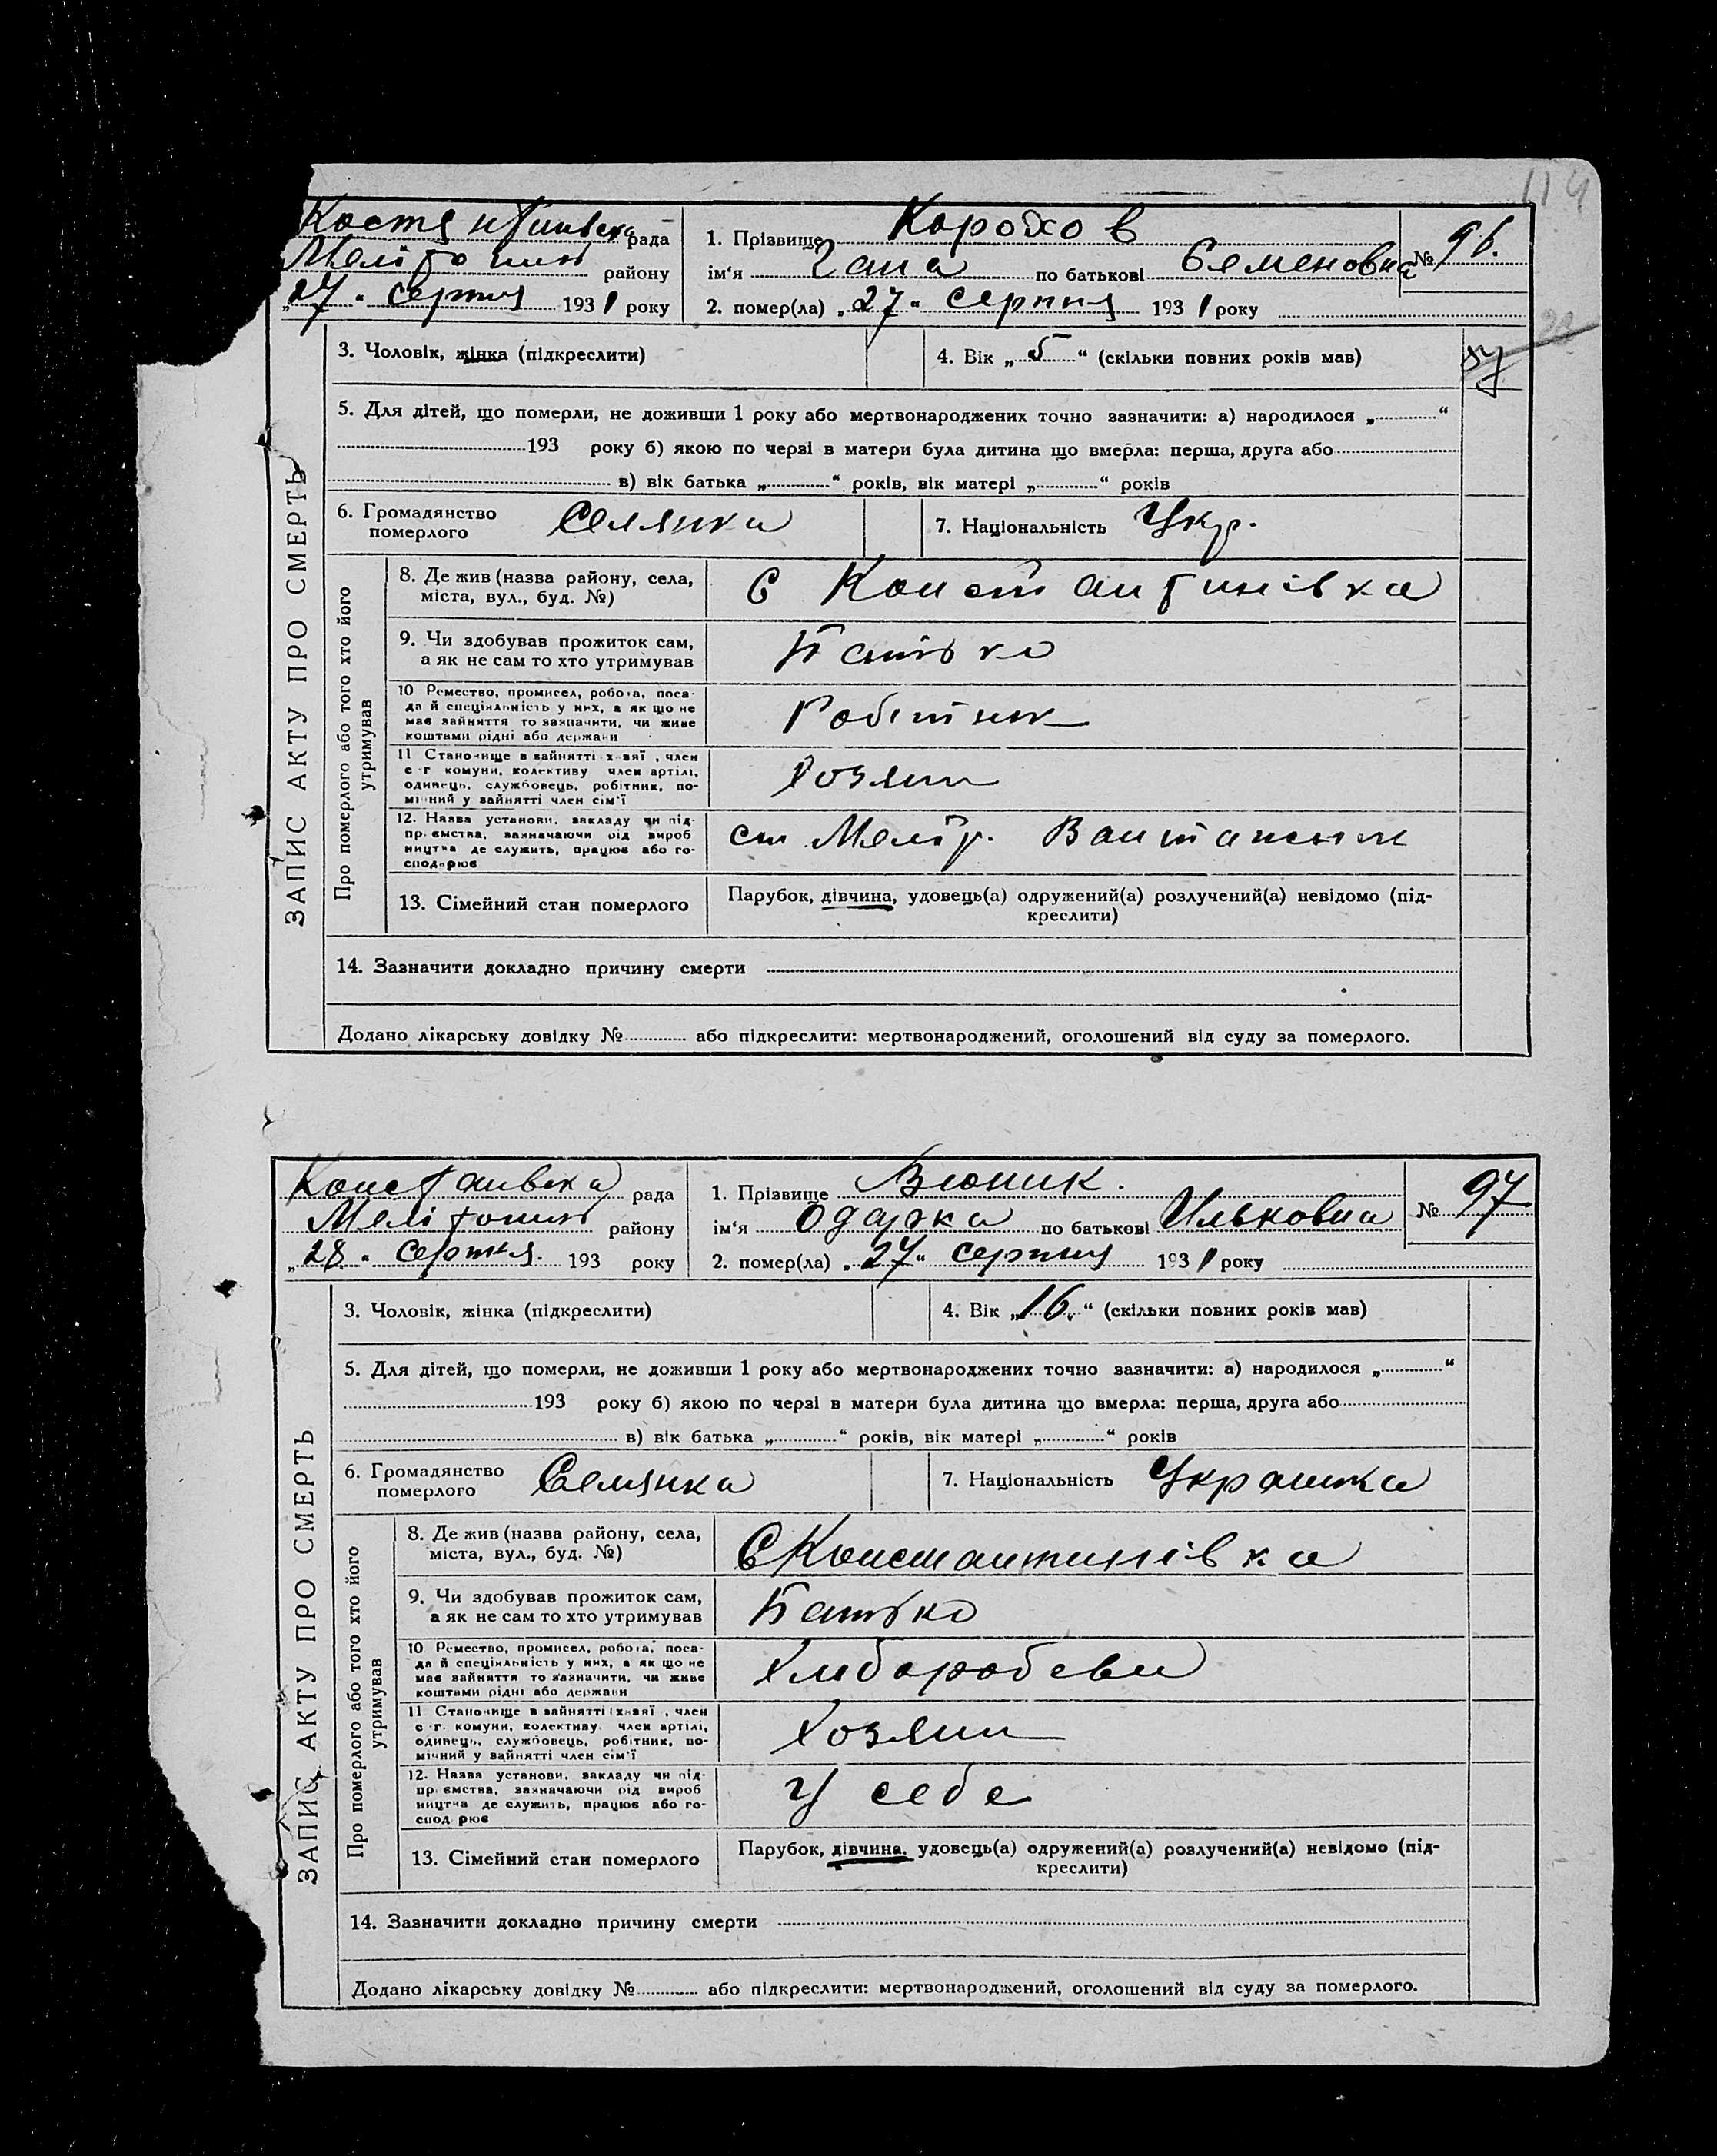 114
Костянтинівска рада
Меліτопил району
„27“ серпня 1931 року
1. Прізвище Корохов
№ 96.
ім'я Гана по батькові Семеновна
2. помер(ла) „27“ серпня 1931 року
3. Чоловік, жінка (підкреслити)
4. Вік „5“ (скільки повних років мав)
5. Для дітей, що померли, не доживши 1 року або мертвонароджених точно зазначити: а) народилося „ “
193 року б) якою по черзі в матери була дитина що вмерла: перша, друга або
в) вік батька „ “ років, вік матері „ “ років
6. Громадянство
померлого
Селянка
7. Національність Укр.
ЗАПИС АКТУ ПРО СМЕРТЬ
Про померлого або того хто його
утримував
8. Де жив (назва району, села,
міста, вул., буд. №)
С Константинівка
9. Чи здобував прожиток сам,
а як не сам то хто утримував
Батько
10 Ремество, промисел, робота, поса-
да й спеціяльність у них, а як що не
має зайняття то зазначити, чи живе
коштами рідні або держави
Робітник
11 Становище в зайнятті х-зяї , член
с-г комуни, колективу член артілі,
одинець, службовець, робітник, по-
мічний у зайнятті член сім'ї
Хозяин
12. Назва установи, закладу чи під-
пр.ємства, зазначаючи рід вироб
ництва де служить, працює або го-
сподарює
ст Меліт.
13. Сімейний стан померлого
Парубок, дівчина, удовець(а) одружений(а) розлучений(а) невідомо (під-
креслити)
14. Зазначити докладно причину смерти
Додано лікарську довідку № або підкреслити: мертвонароджений, оголошений від суду за померлого.
рада
Меліτопил району
„28“ серпня. 193 року
1. Прізвище Вюник.
№ 97
ім'я Одарка по батькові Ильковна
2. помер(ла) „27“ серпня 1931 року
3. Чоловік, жінка (підкреслити)
4. Вік „16.“ (скільки повних років мав)
5. Для дітей, що померли, не доживши 1 року або мертвонароджених точно зазначити: а) народилося „ “
193 року б) якою по черзі в матери була дитина що вмерла: перша, друга або
в) вік батька „ “ років, вік матері „ “ років
6. Громадянство
померлого
Селянка
7. Національність Украинка
ЗАПИС АКТУ ПРО СМЕРТЬ
Про померлого або того хто його
утримував
8. Де жив (назва району, села,
міста, вул., буд. №)
С Константинівка
9. Чи здобував прожиток сам,
а як не сам то хто утримував
Батько
10 Ремество, промисел, робота, поса-
да й спеціяльність у них, а як що не
має зайняття то зазначити, чи живе
коштами рідні або держави
11 Становище в зайнятті х-зяї , член
с-г. комуни, колективу член артілі,
одинець, службовець, робітник, по-
мічний у зайнятті член сім'ї
Хозяин
12. Назва установи, закладу чи під-
пр.ємства, зазначаючи рід вироб
ництва де служить, працює або го-
спод рює
У себе
13. Сімейний стан померлого
Парубок, дівчина, удовець(а) одружений(а) розлучений(а) невідомо (під-
креслити)
14. Зазначити докладно причину смерти
Додано лікарську довідку № або підкреслити: мертвонароджений, оголошений від суду за померлого.